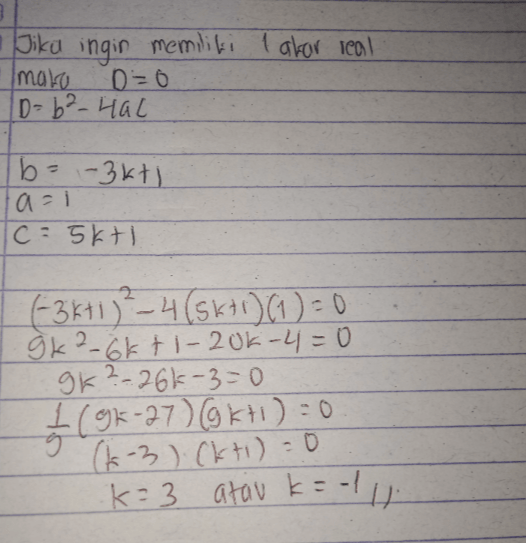 Jika ingin memiliki 1 akar real
maka D=0
D= b²- 4ac
b= -3k+1
a=1
c= 5k+1
(-3k+1)²-4(5k+1)(1)=0
9k²-6k+1-20k-4=0
9k²-26k-3=0
1/9 (9k-27)(9k+1)=0
(k-3) (k+1)=0
k=3 atau k=-1 //.